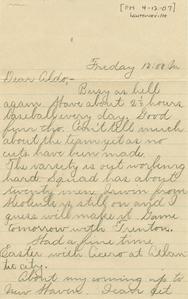 [PM 4-12-07]
Friday 12:00 M
Dear Aldo,-
Busy as hell
again. Have about 2½ hours
baseball every day. Good
fun tho. Can't tell much
about the team yet as no
cuts have been made.
The varsity is out working
hard. Squad has about
twenty men. Irwin from
is still on and I
guess will make it. Game
tomorrow with Trenton.
Had a fine time
Easter with Cicero at Atlan
tic city.
About my coming up to
New Haven. I can get